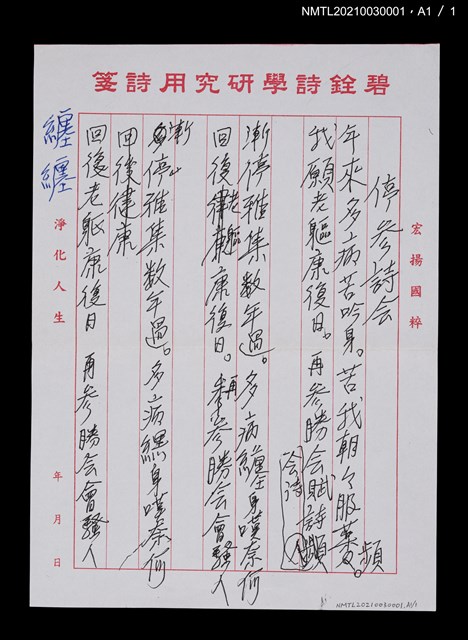 NMTL20210030001，A1 / 1
碧銓詩學研究用詩箋
宏揚國粹
停參詩会
年來多病苦吟身。苦我朝々服藥頻。
我願老軀康復日。再參勝会賦詩
会詩人
漸停雅集数年過。多病纏身嘆奈何
回後老軀康復日。再參勝会會騷人
漸停雅集数年過。多病纏身嘆奈何
回後健康
回後老軀康復日 再參勝会會騷人
纏纏
淨化人生
年月日
NMTL20210030001.A1/1